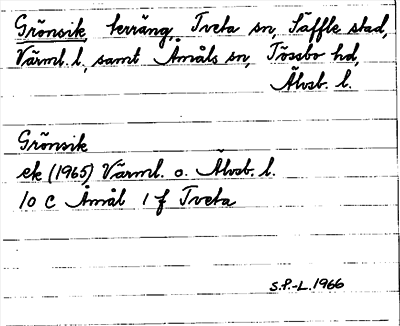 Grönsik, terräng, Tveta sn, Säffle stad,
Värml. l, samt Åmåls sn, Tössbo hd,
Älvsb. l.
Grönsik
ek (1965) Värml. o. Älvsb. l.
10 C Åmål 1 f Tveta
S.P.-L. 1966